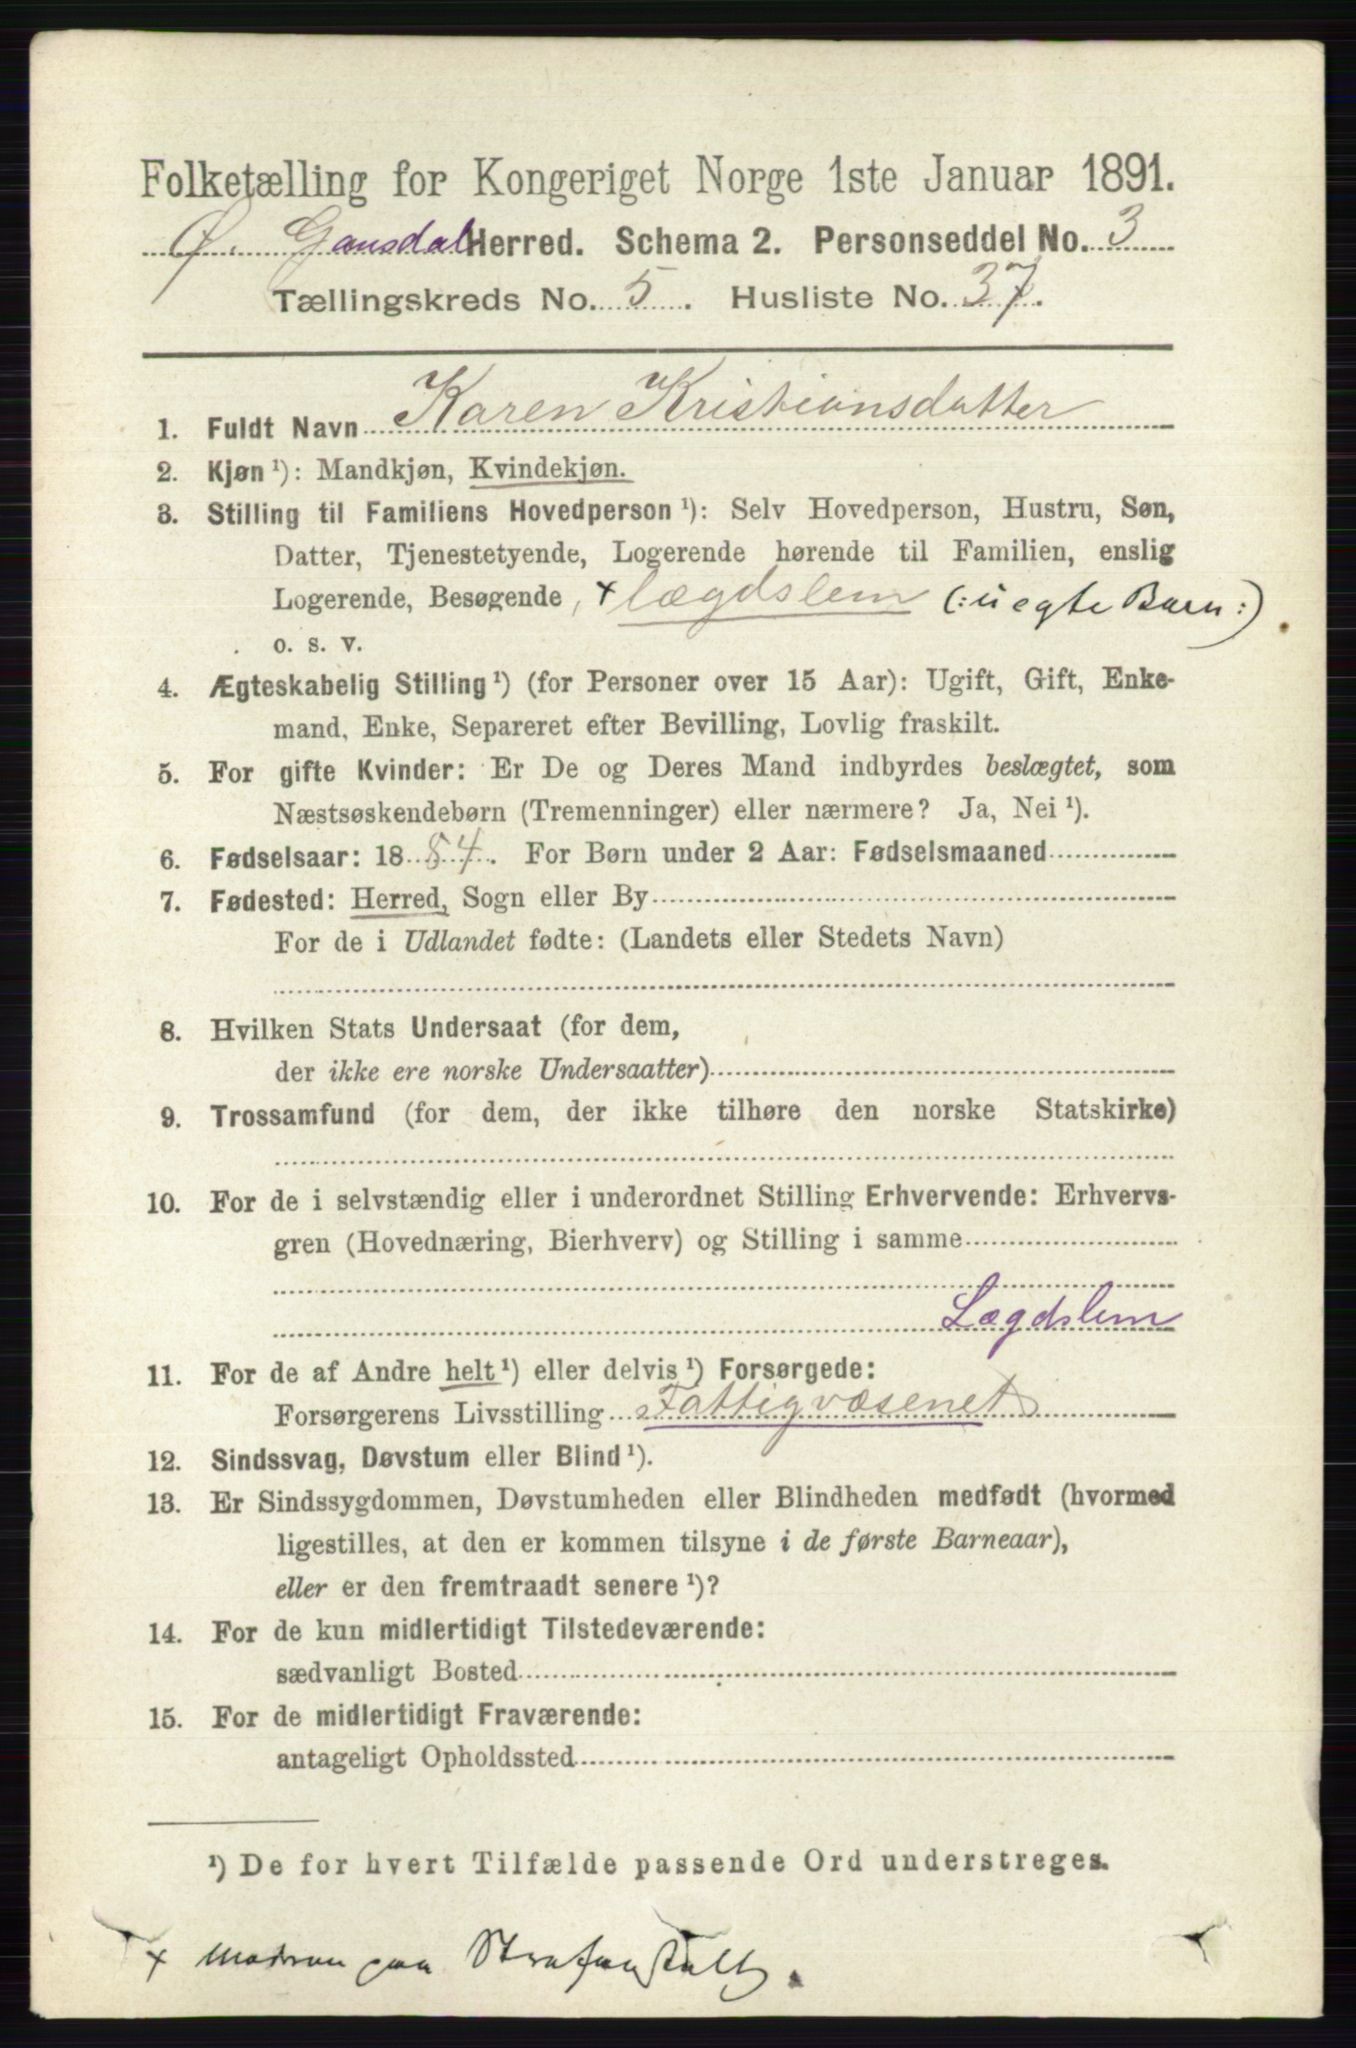 Folketælling for Kongeriget Norge 1ste Januar 1891.
Ø. Gausdal Herred. Schema 2. Personseddel No. 3
Tællingskreds No. 5. Husliste No. 37.
1. Fuldt Navn Karen Kristiansdatter
2. Kjøn ¹): Mandkjøn, Kvindekjøn.
3. Stilling til Familiens Hovedperson ¹): Selv Hovedperson, Hustru, Søn,
Datter, Tjenestetyende, Logerende hørende til Familien, enslig
Logerende, Besøgende, + lægdslem (: uegte Barn :)
o. s. v.
4. Ægteskabelig Stilling ¹) (for Personer over 15 Aar): Ugift, Gift, Enke-
mand, Enke, Separeret efter Bevilling, Lovlig fraskilt.
5. For gifte Kvinder: Er De og Deres Mand indbyrdes beslægtet, som
Næstsøskendebørn (Tremenninger) eller nærmere? Ja, Nei ¹).
6. Fødselsaar: 1884. For Børn under 2 Aar: Fødselsmaaned
7. Fødested: Herred, Sogn eller By
For de i Udlandet fødte: (Landets eller Stedets Navn)
8. Hvilken Stats Undersaat (for dem,
der ikke ere norske Undersaatter)
9. Trossamfund (for dem, der ikke tilhøre den norske Statskirke)
10. For de i selvstændig eller i underordnet Stilling Erhvervende: Erhvervs-
gren (Hovednæring, Bierhverv) og Stilling i samme
Lægdslem
11. For de af Andre helt ¹) eller delvis ¹) Forsørgede:
Forsørgerens Livsstilling Fattigvæsenet
12. Sindssvag, Døvstum eller Blind ¹).
13. Er Sindssygdommen, Døvstumheden eller Blindheden medfødt (hvormed
ligestilles, at den er kommen tilsyne i de første Barneaar),
eller er den fremtraadt senere ¹)?
14. For de kun midlertidigt Tilstedeværende:
sædvanligt Bosted
15. For de midlertidigt Fraværende:
antageligt Opholdssted
¹) De for hvert Tilfælde passende Ord understreges.
+ Modren paa Strafanstalt.